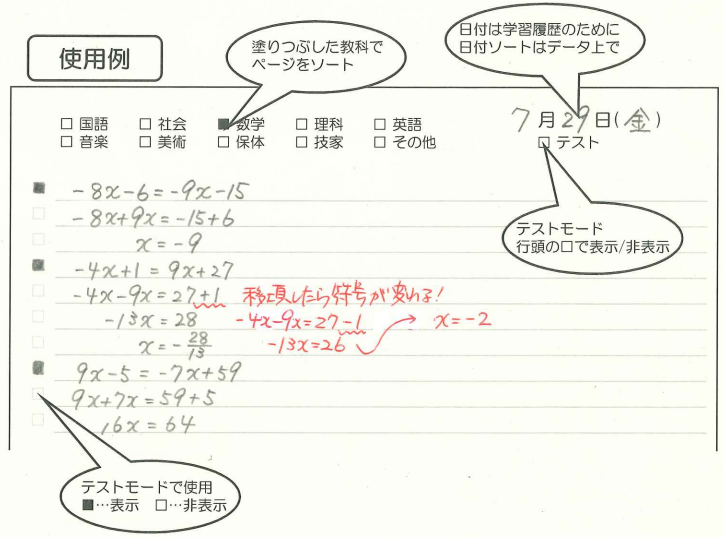 使用例
塗りつぶした教科で
ページをソート
日付は学習履歴のために
日付ソートはデータ上で
□ 国語 □ 社会 ■ 数学 □ 理科 □ 英語
□ 音楽 □ 美術 □ 保体 □ 技家 □ その他
7月29日(金)
□ テスト
テストモード
行頭の□で表示/非表示
-8x-6=-9x-15
-8x+9x=-15+6
x=-9
-4x+1=9x+27
-4x-9x=27+1 移項したら符号が変わる!
-13x=28 -4x-9x=27-1 x=-2
x=-28/13 -13x=26
9x-5=-7x+59
9x+7x=59+5
16x=64
テストモードで使用
■…表示 □…非表示